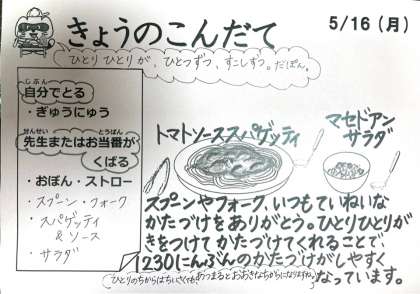 きょうのこんだて
5/16（月）
ひとりひとりが、ひとつずつ、すこしずつ。だくぽん。
自分でとる
じぶん
・ぎゅうにゅう
先生またはお当番が
せんせい とうばん
くばる
・おぼん・ストロー
・スプーン・フォーク
・スパゲッティ
& ソース
・サラダ
トマトソーススパゲッティ
マセドアン
サラダ
スプーンやフォーク、いつもていねいな
かたづけをありがとう。ひとりひとりが
きをつけてかたづけてくれることで
230にんぶんのかたづけがしやすく
なっています。
ひとりのちからはちいさくても、あつまるとおおきなちからになりますね。